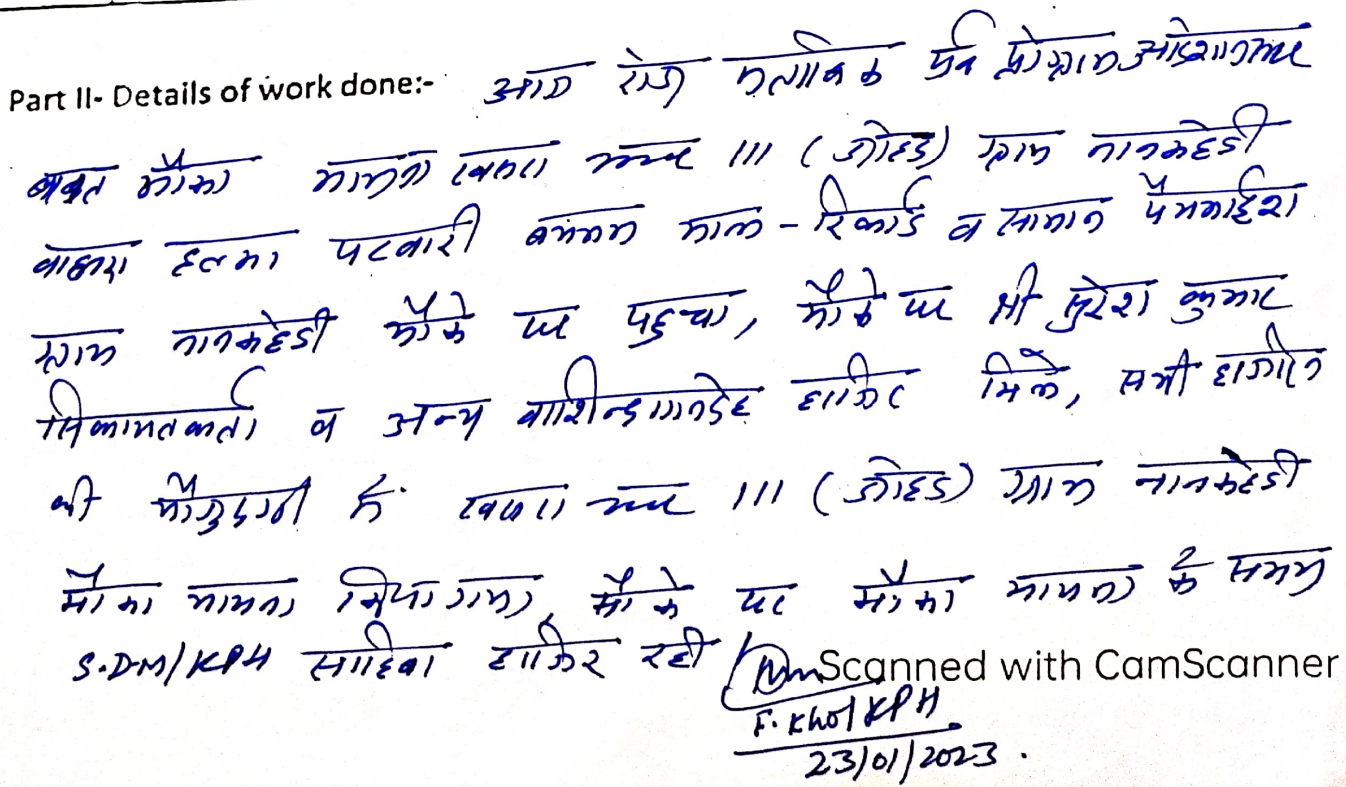 Part II- Details of work done:- आज रोज मुताबिक पूर्व प्रोग्राम आदेशानुसार
बाबत मौका मायना खसरा नम्बर 111 (जोहड) ग्राम नानकहेडी
वाहमरा हलका पटवारी बमय माल - रिकार्ड व सामान पैमाईश
ग्राम नानकहेडी मौके पर पहुचा, मौके पर श्री सुरेश कुमार
शिकायतकर्ता व अन्य बाशिन्दगानदेह हाजिर मिले, सभी हाजरीन
की मौजुदगी में खसरा नम्बर 111 (जोहड) ग्राम नानकहेडी
मौका मायना किया गया, मौके पर मौका मायना के समय
S.D.M/KPH साहिबा हाजिर रही
Scanned with CamScanner
F. Khol KPH
23/01/2023.